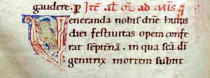 gaudere. p Ite al or ad mis
Veneranda nobis dne huius
diei festiuitas opem confe
rat sepiterna. in qua sca di
genitrix mortem subiit